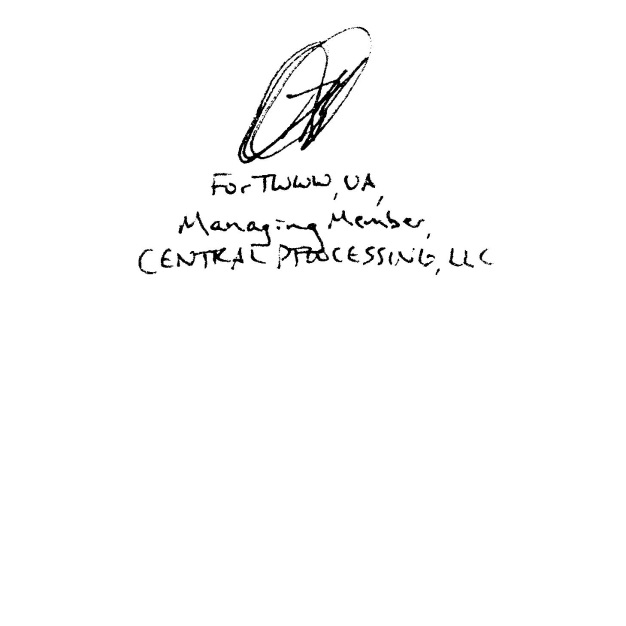 For TWWW, UA,
Managing Member,
CENTRAL PROCESSING, LLC